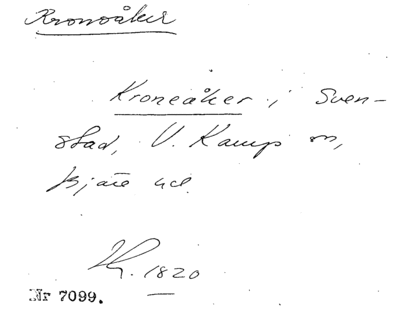 Kronoåker
Kroneåker i Sven-
stad, V. Karup sn,
Bjäre hd.
Kh. 1820
Nr 7099.